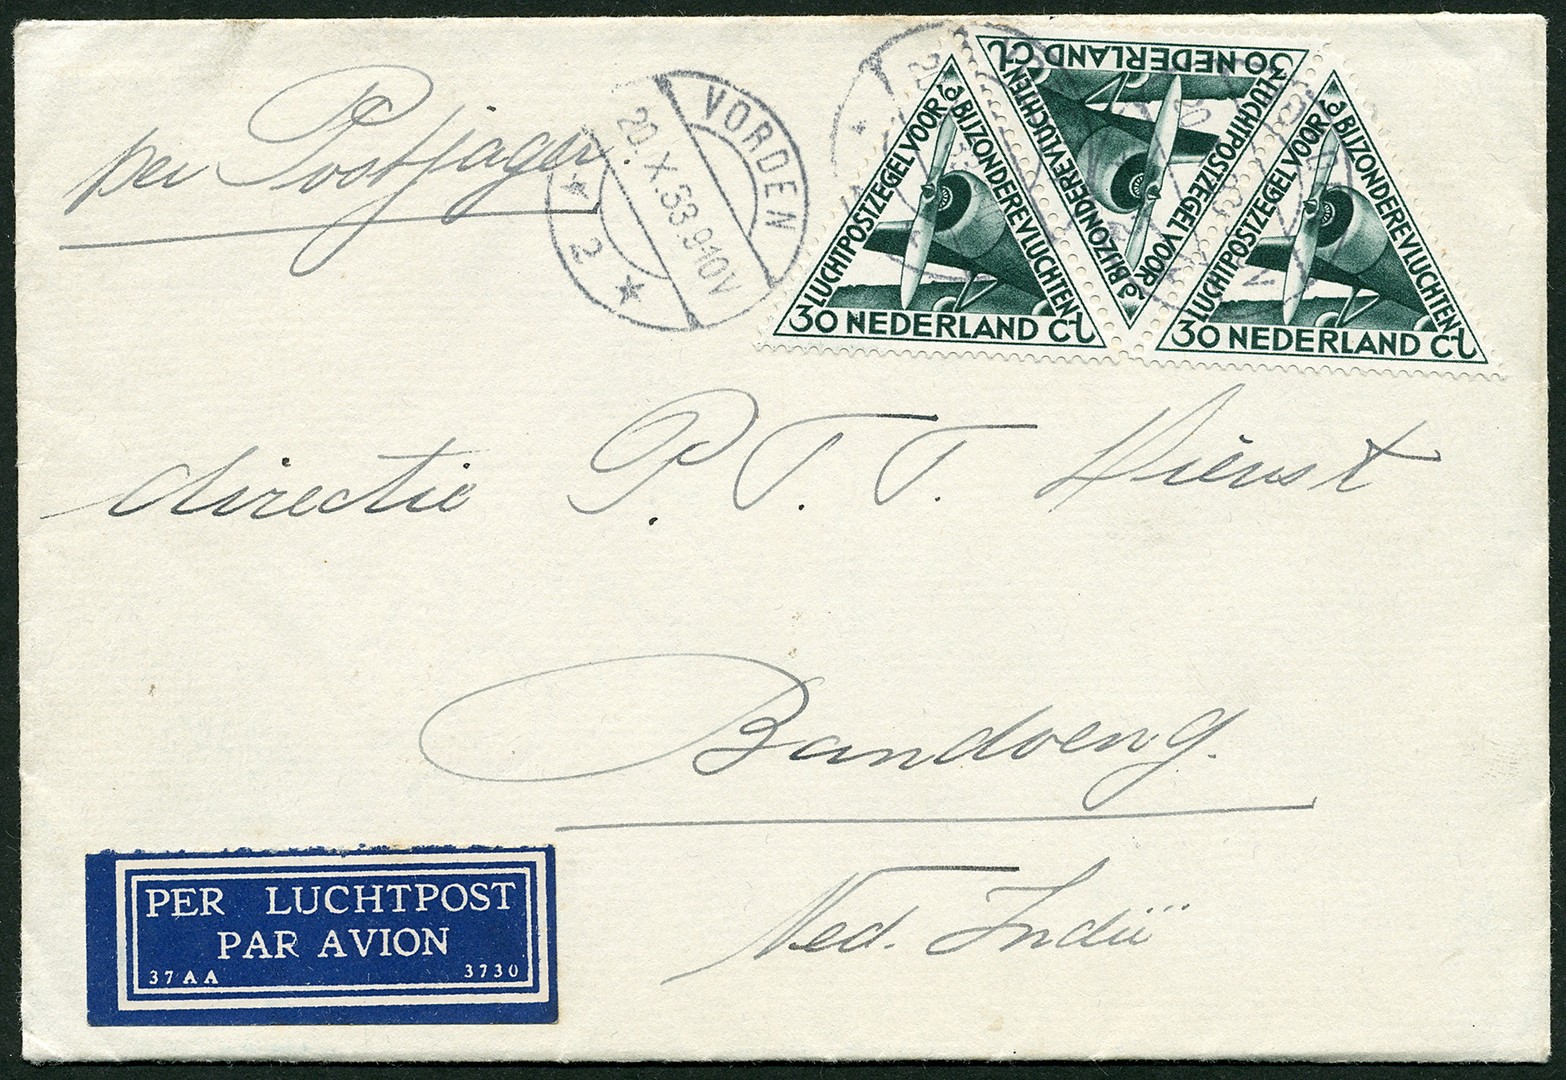 per Postjager
VORDEN
20.X.33.9-10V
* 2 *
LUCHTPOSTZEGEL VOOR
BIJZONDERE VLUCHTEN
30 NEDERLAND Ct
30 NEDERLAND Ct
BIJZONDERE VLUCHTEN
LUCHTPOSTZEGEL VOOR
LUCHTPOSTZEGEL VOOR
BIJZONDERE VLUCHTEN
30 NEDERLAND Ct
directie P. T. T. Dienst
Bandoeng.
Ned. Indië
PER LUCHTPOST
PAR AVION
37AA 3730